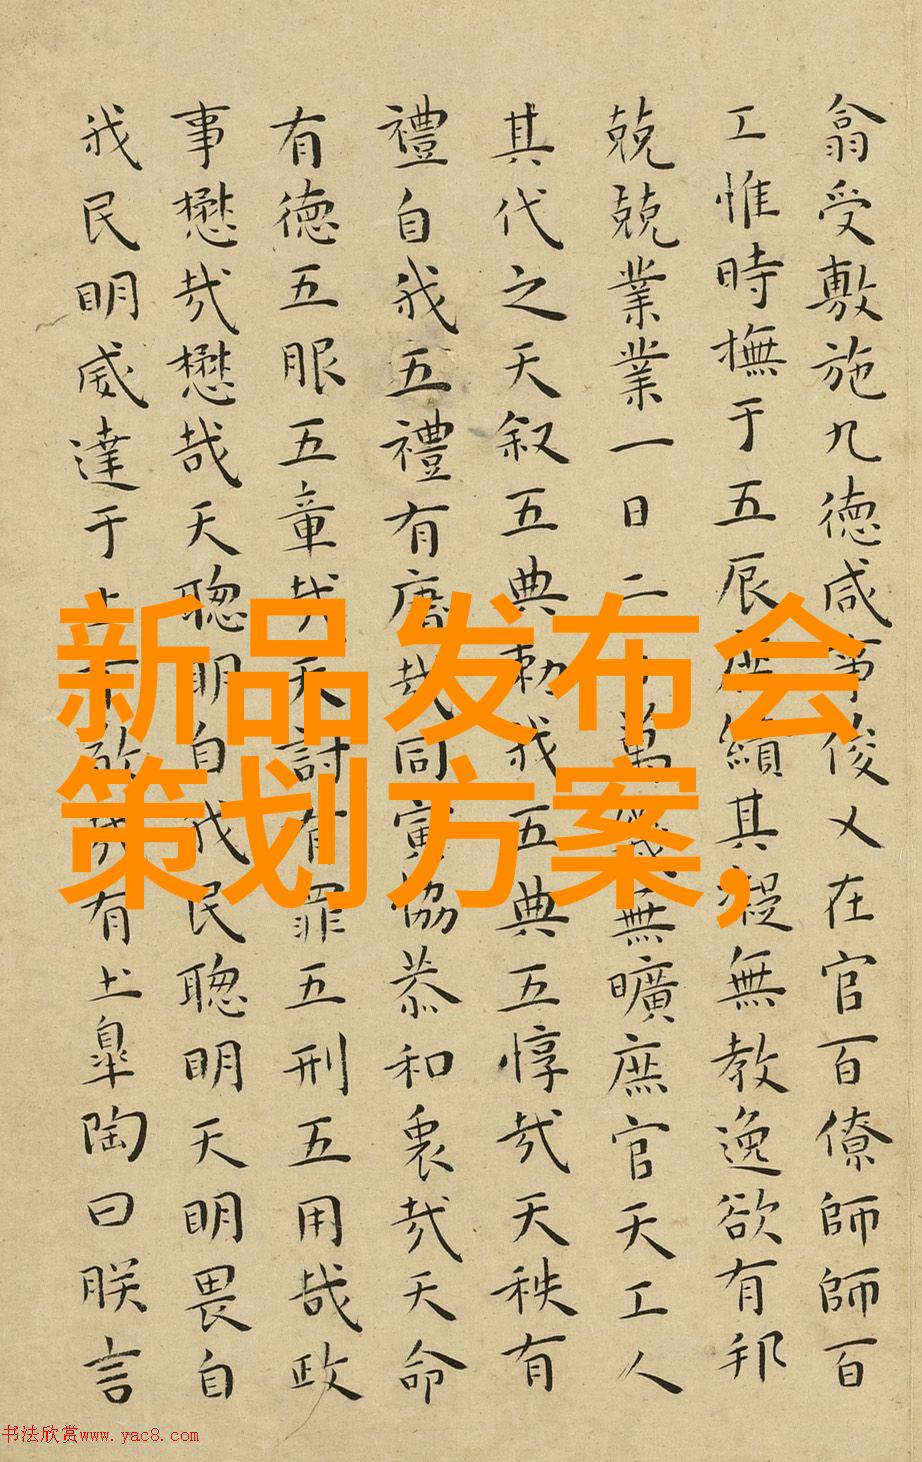 翕受敷施九徳咸事俊乂在官百僚師師百
工惟時撫于五辰庶績其凝無教逸欲有邦
兢兢業業一日二日萬幾無曠庶官天工人
其代之天叙五典勑我五典五惇哉天秩有
禮自我五禮有庸哉同寅協恭和衷哉天命
有徳五服五章哉天討有罪五刑五用哉政
事懋哉懋哉天聦明自我民聦明天明畏自
我民明威達于上下敬哉有土皋陶曰朕言
新品发布会
策划方案,
书法欣赏www.yac8.com